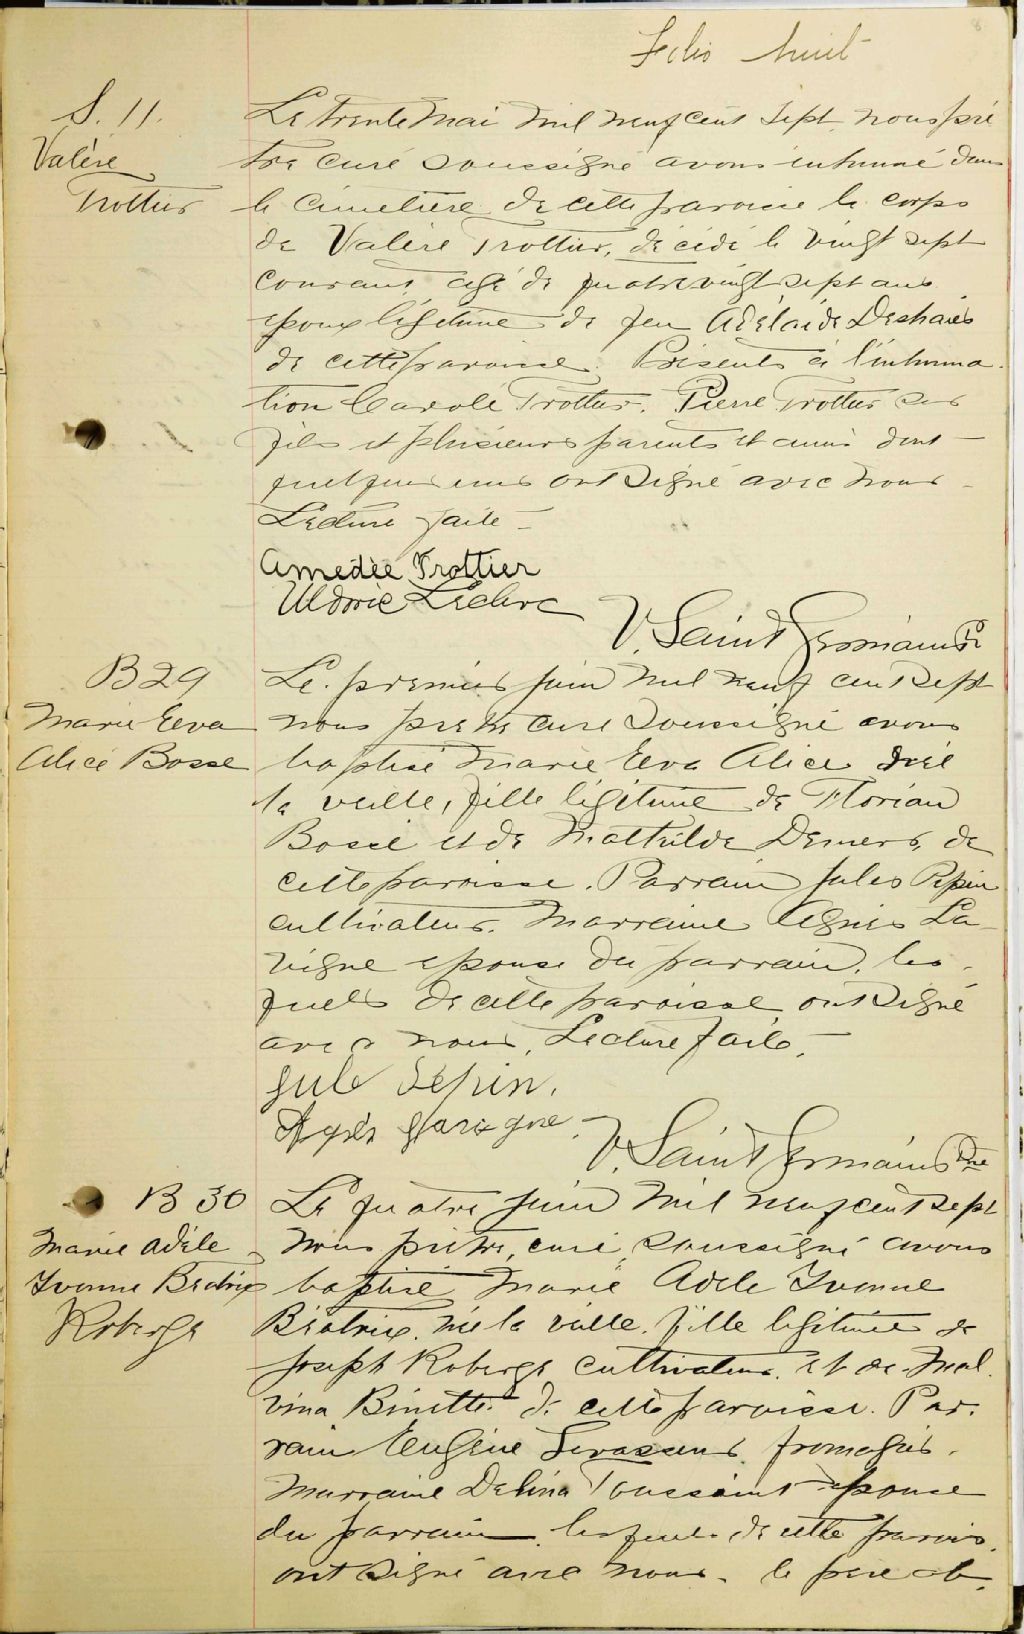 Folio huit
S. 11.
Valère
Trottier
Le trente Mai mil neuf cent sept, nous prê
tre curé soussigné avons inhumé dans
le cimetière de cette paroisse le corps
de Valère Trottier, décédé le vingt sept
courant agé de quatre vingt sept ans
epoux légitime de feu Adélaïde Deshaies
de cette paroisse. Présents à l'inhuma-
tion Trottier. Pierre Trottier ses
fils et plusieurs parents et amis dont
quelques uns ont signé avec nous
Lecture faite
Amedée Trottier
Uldoric Leclerc
V. Saint Germain Ptre
B 29
Marie Eva
Alice Bossé
Le premier juin mil neuf cent sept
nous prêtre curé soussigné avons
baptisé Marie Eva Alice née
la veille, fille légitime de Florian
Bossé et de Mathilde Demers, de
cette paroisse. Parrain Jules Pepin
cultivateur. Marraine Agnès La-
vigne epouse du parrain, les-
quels de cette paroisse ont signé
avec nous, Lecture faite,
Jule Pépin.
Agnès
V. Saint Germain Ptre
B 30
Marie Adèle
Yvonne Béatrix
Roberge
Le quatre juin mil neuf cent sept
nous prêtre, curé, soussigné avons
baptisé Marie Adèle Yvonne
Béatrix, née la veille, fille légitime de
Joseph Roberge cultivateur, et de Mal-
vina Binette de cette paroisse. Par-
rain Eugène Levasseur fromager.
Marraine Délina Toussaint epouse
du parrain, lesquels de cette paroisse
ont signé avec nous. le père